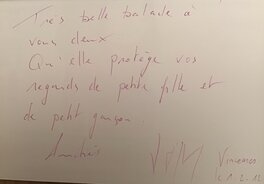 Très belle balade à
vous deux
Qu'elle protège vos
regards de petite fille et
de petit garçon.
Amitiés
Vincennes